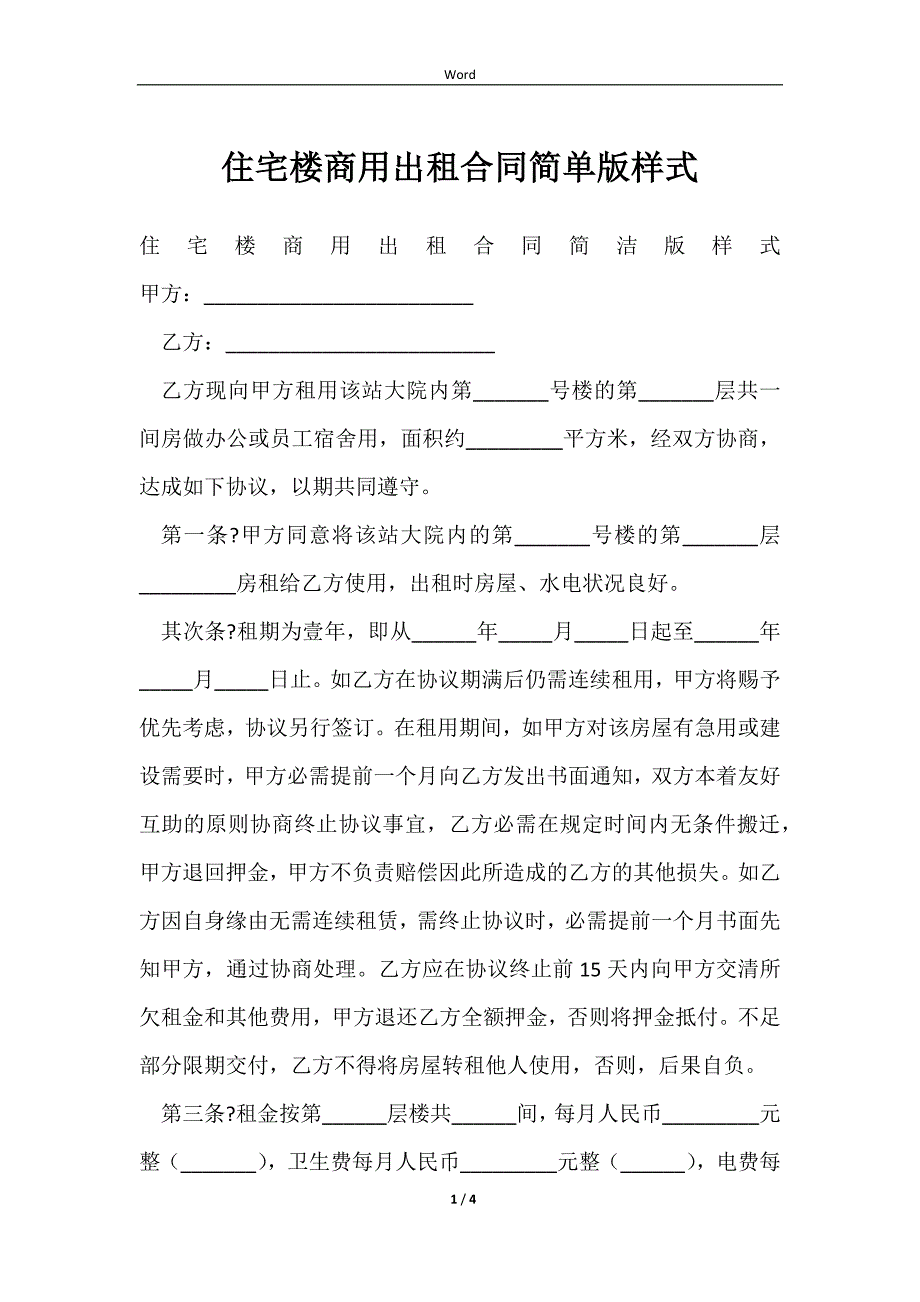 Word
住宅楼商用出租合同简单版样式
住宅楼商用出租合同简洁版样式
甲方：_________________________
乙方：_________________________
乙方现向甲方租用该站大院内第_______号楼的第_______层共一
间房做办公或员工宿舍用，面积约_________平方米，经双方协商，
达成如下协议，以期共同遵守。
第一条?甲方同意将该站大院内的第_______号楼的第_______层
_________房租给乙方使用，出租时房屋、水电状况良好。
其次条?租期为壹年，即从______年_____月_____日起至______年
_____月_____日止。如乙方在协议期满后仍需连续租用，甲方将赐予
优先考虑，协议另行签订。在租用期间，如甲方对该房屋有急用或建
设需要时，甲方必需提前一个月向乙方发出书面通知，双方本着友好
互助的原则协商终止协议事宜，乙方必需在规定时间内无条件搬迁，
甲方退回押金，甲方不负责赔偿因此所造成的乙方的其他损失。如乙
方因自身缘由无需连续租赁，需终止协议时，必需提前一个月书面先
知甲方，通过协商处理。乙方应在协议终止前15天内向甲方交清所
欠租金和其他费用，甲方退还乙方全额押金，否则将押金抵付。不足
部分限期交付，乙方不得将房屋转租他人使用，否则，后果自负。
第三条?租金按第______层楼共______间，每月人民币_________元
整（_______），卫生费每月人民币_________元整（______），电费每
1 / 4